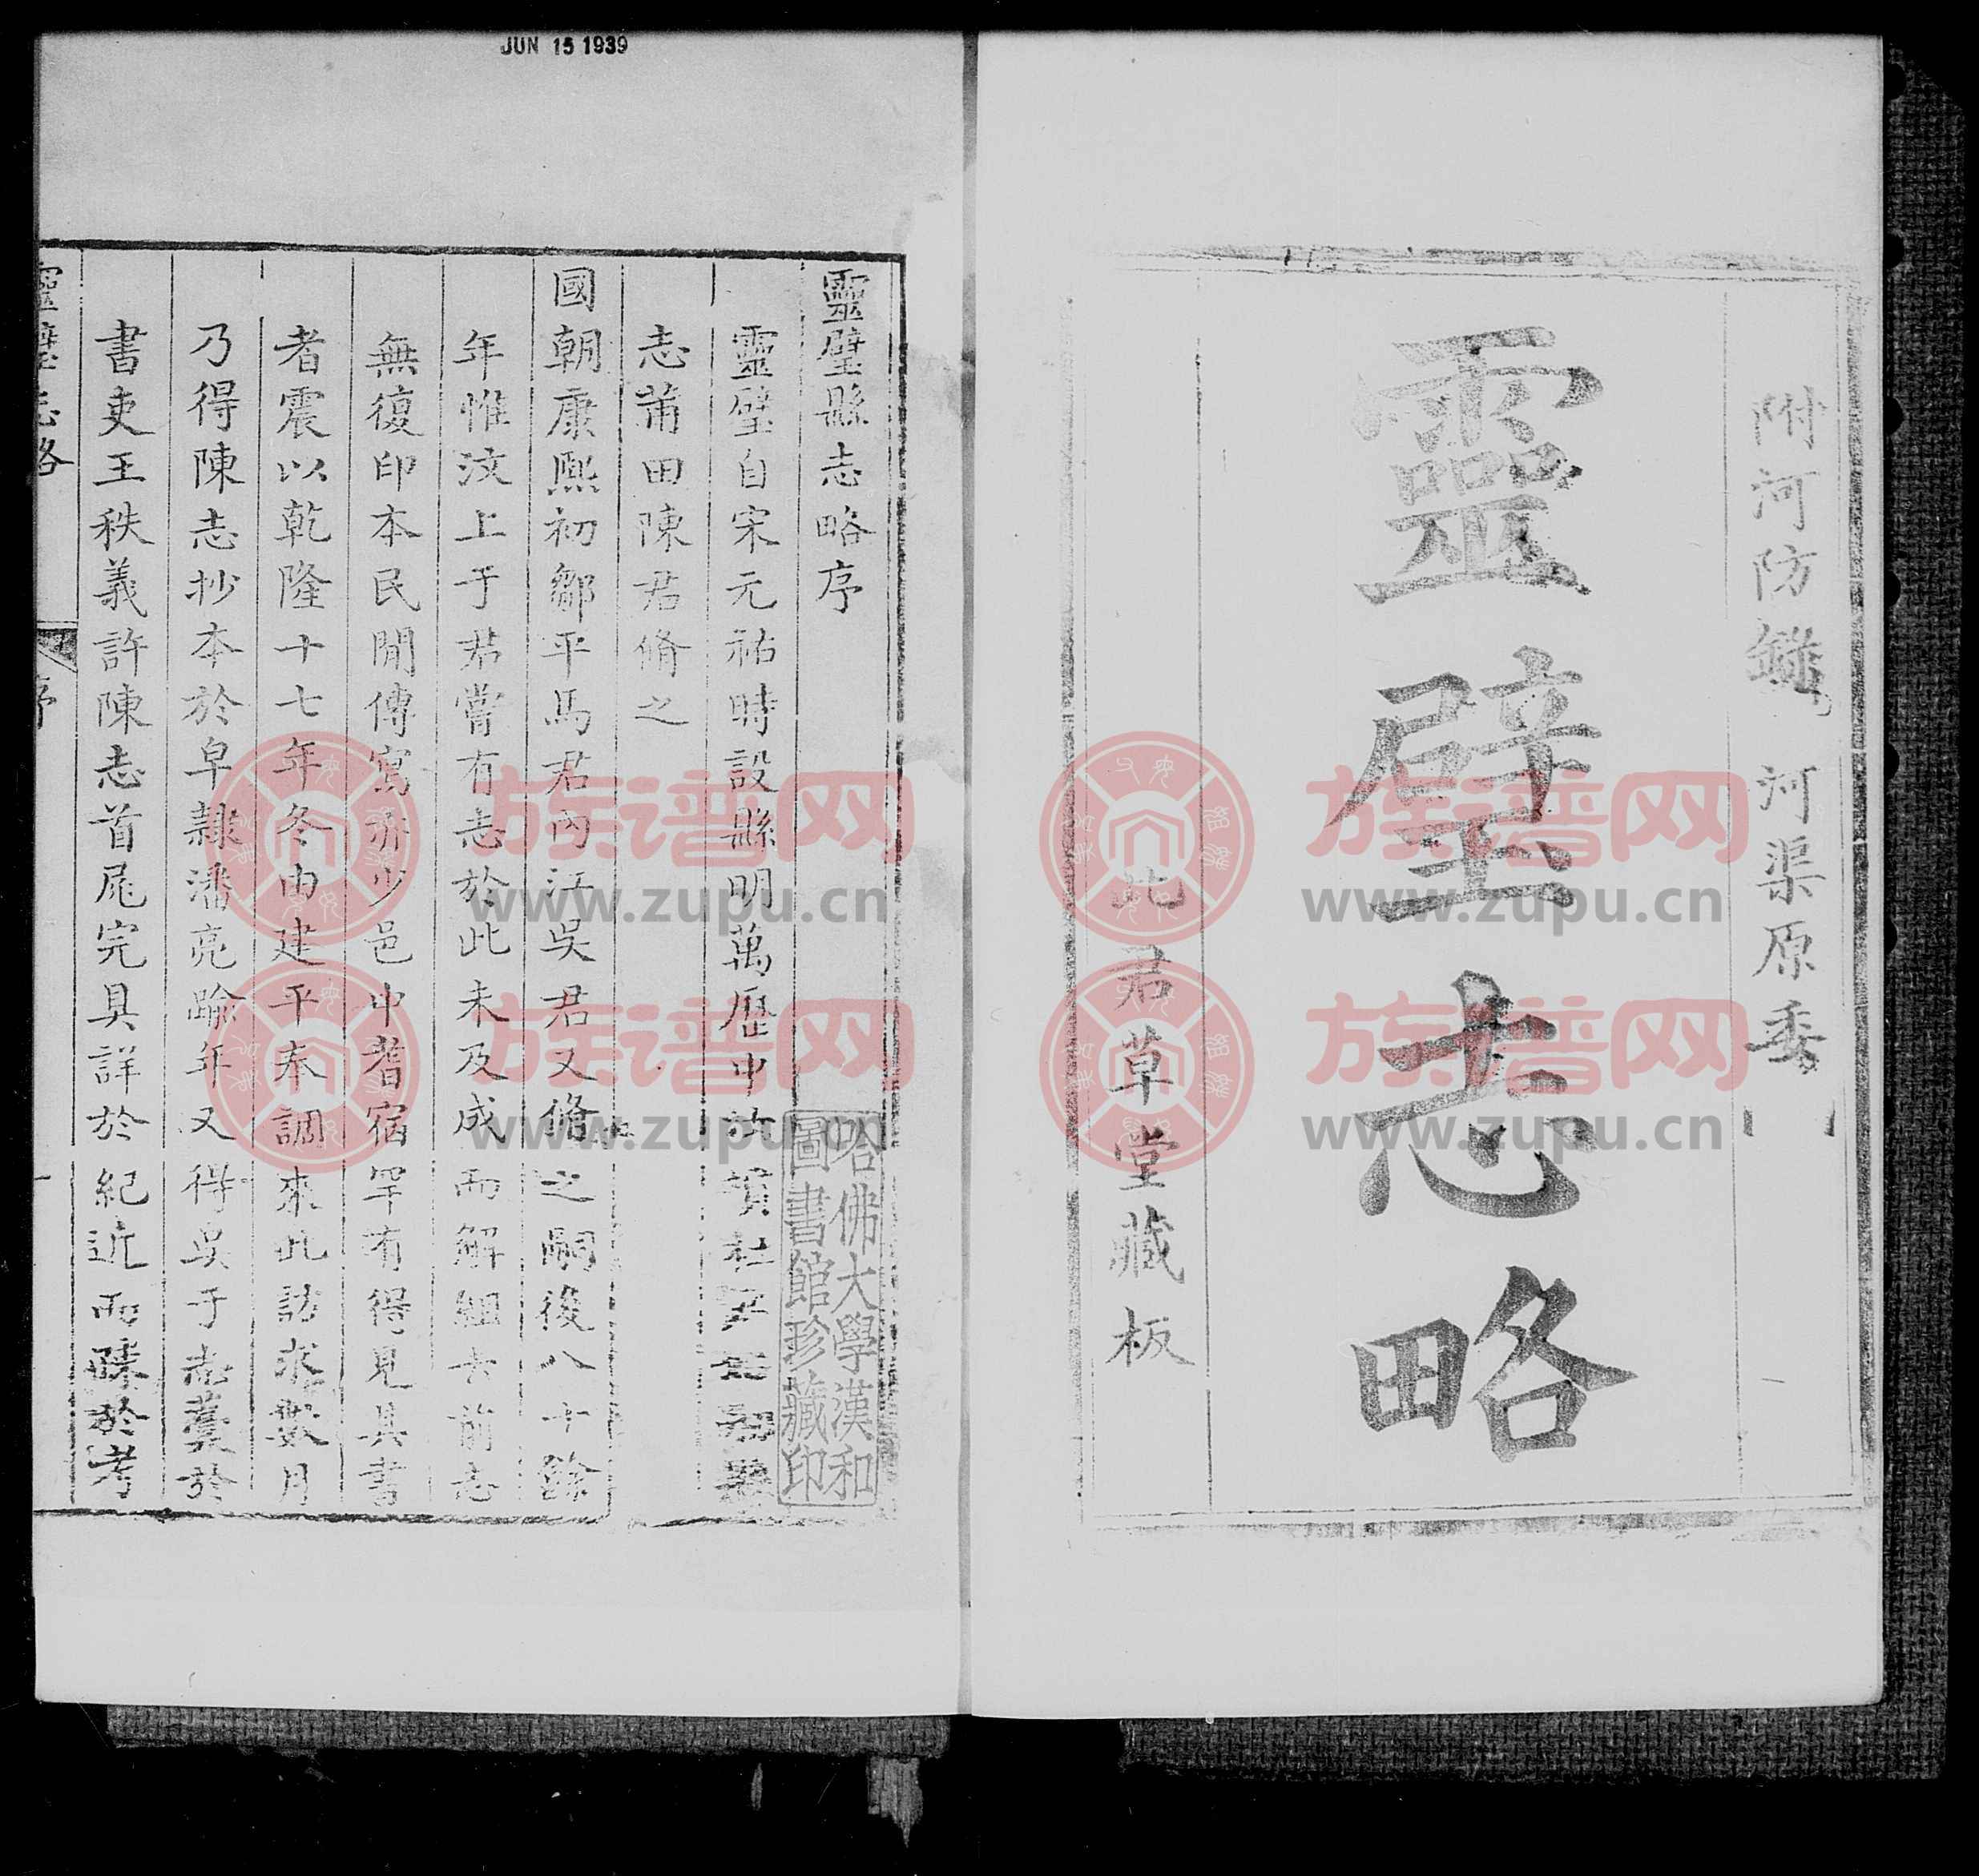 JUN 15 1939
附河防錄 河渠原委
靈璧志略
此君草堂藏板
靈璧縣志略序
靈璧自宋元祐時設縣明萬歷中
志莆田陳君脩之
國朝康熙初鄒平馬君內江吳君又脩之嗣後八十餘
年惟汶上于君嘗有志於此未及成而解組去前志
無復印本民間傳寫亦少邑中耆宿罕有得見其書
者震以乾隆十七年冬由建平奉調來此訪求數月
乃得陳志抄本於皁隸潘亮踰年又得吳于志藁於
書吏王秩義許陳志首尾完具詳於紀近而疎於考
靈璧志略
序
一
哈佛大學漢和
圖書館珍藏印
族谱网
www.zupu.cn
族谱网
www.zupu.cn
族谱网
www.zupu.cn
族谱网
www.zupu.cn